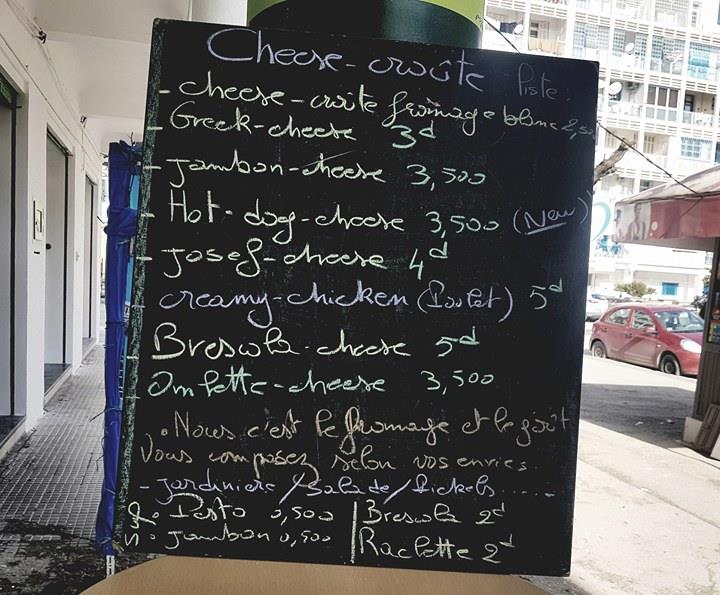 Cheese-croûte Piste
- cheese-croûte fromage blanc 2,500
- Greek-cheese 3d
- jambon-cheese 3,500
- Hot-dog-cheese 3,500 (New)
- Josef-cheese 4d
- creamy-chicken (Poulet) 5d
- Bresola-cheese 5d
- Omlette-cheese 3,500
. Nous c'est le fromage et le goût
Vous composez selon vos envies.
- Jardiniere/Salade/Pickels ......
. Pesto 0,500 | Bresola 2d
. Jambon 0,500 | Raclette 2d